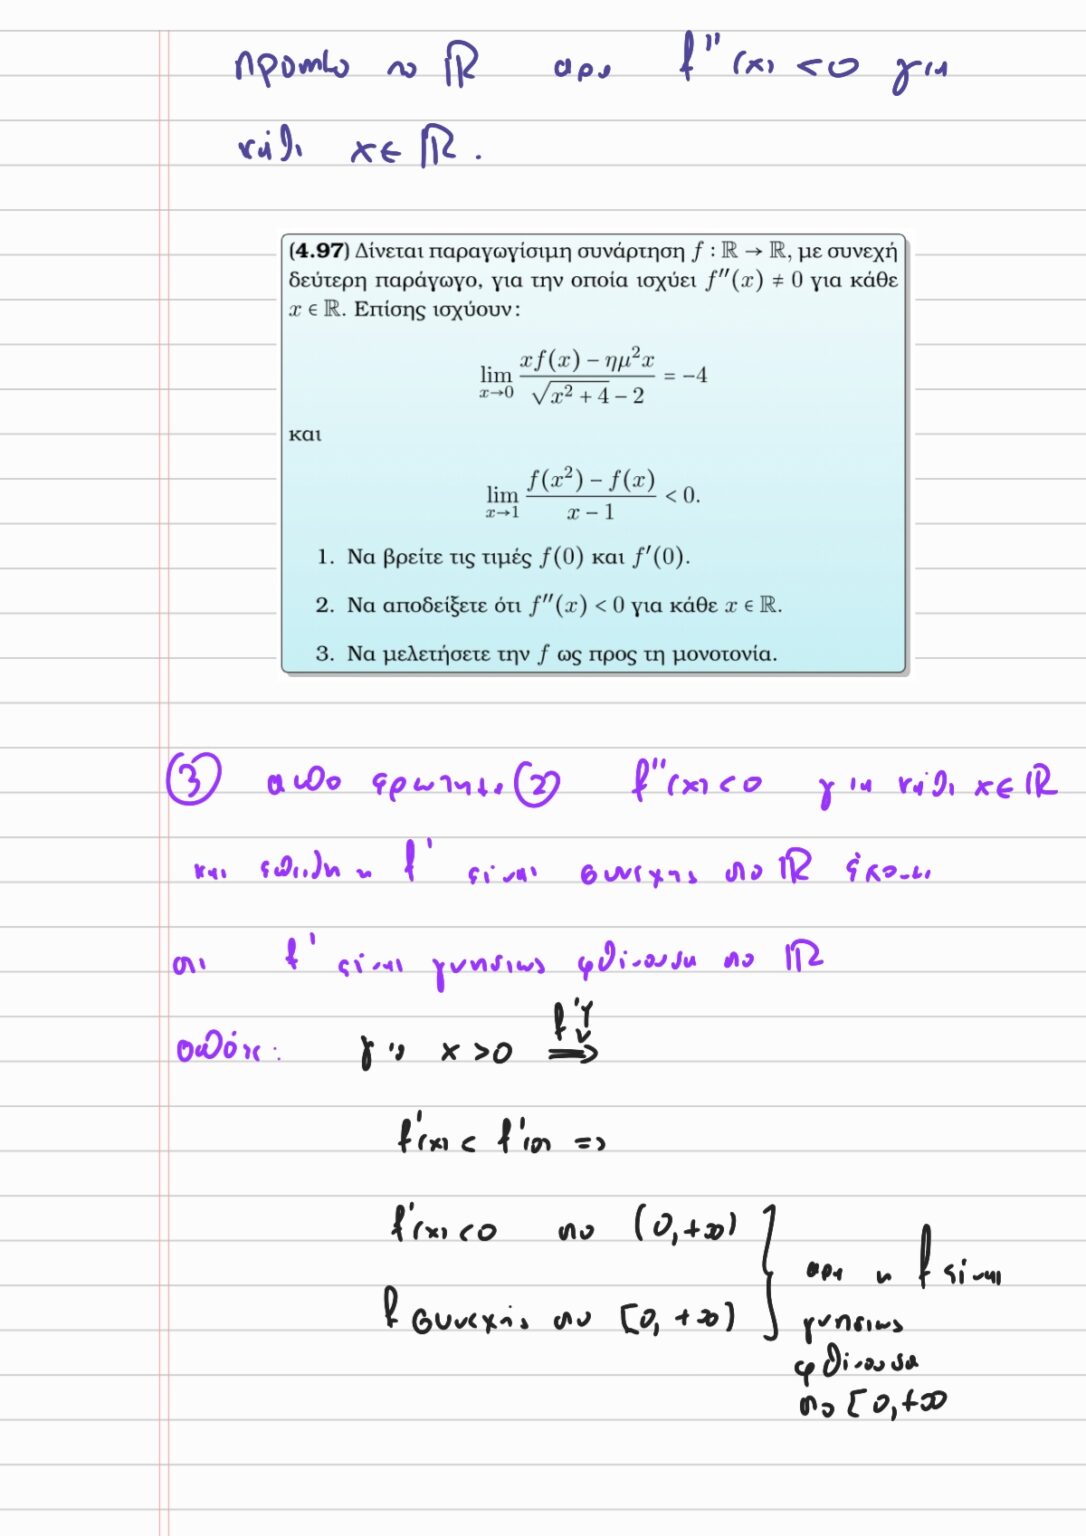 πρόσημο στο ℝ άρα f''(x) < 0 για
κάθε x ∈ ℝ.
(4.97) Δίνεται παραγωγίσιμη συνάρτηση f : ℝ → ℝ, με συνεχή
δεύτερη παράγωγο, για την οποία ισχύει f''(x) ≠ 0 για κάθε
x ∈ ℝ. Επίσης ισχύουν:
lim_{x→0} (xf(x) − ημ²x)/(√(x² + 4) − 2) = −4
και
lim_{x→1} (f(x²) − f(x))/(x − 1) < 0.
1. Να βρείτε τις τιμές f(0) και f'(0).
2. Να αποδείξετε ότι f''(x) < 0 για κάθε x ∈ ℝ.
3. Να μελετήσετε την f ως προς τη μονοτονία.
③ από ερώτημα ② f''(x) < 0 για κάθε x ∈ ℝ
και επειδή η f' είναι συνεχής στο ℝ έχουμε
ότι f' είναι γνησίως φθίνουσα στο ℝ
οπότε: για x > 0 ⟹ f'↘
f'(x) < f'(0) =>
f'(x) < 0 στο (0, +∞)
f συνεχής στο [0, +∞)
άρα η f είναι
γνησίως
φθίνουσα
στο [0, +∞